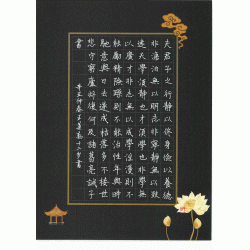 夫君子之行靜以修身儉以養德
非澹泊無以明志非寧靜無以致
遠夫學須靜也才須學也非學無
以廣才非志無以成學淫漫則不
能勵精險躁則不能治性年與時
馳意與日去遂成枯落多不接世
悲守窮廬將復何及諸葛亮誡子
書 辛丑仲春 十二岁書